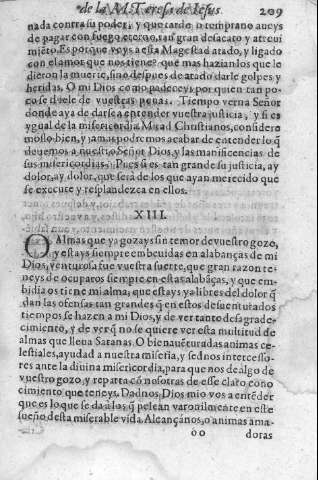 de la M. Teresa de Iesus. 209
nada contra su poder; y que tarde, o temprano aueys
de pagar con fuego eterno, tan gran desacato y atreui
miẽto. Es porque veys a esta Magestad atado, y ligado
con el amor que nos tiene? que mas hazian los que le
dieron la muerte, sino despues de atado darle golpes y
heridas. O mi Dios como padeceys por quien tan po-
co se duele de vuestras penas. Tiempo verna Señor
donde aya de darse a entender vuestra justicia, y si es
ygual de la misericordia. Mirad Christianos, considere
moslo bien, y jamas podremos acabar de entender lo q̃
deuemos a nuestro Señor Dios, y las manificencias de
sus misericordias. Pues si es tan grande su justicia, ay
dolor, ay dolor, que será de los que ayan merecido que
se execute y resplandezca en ellos.
XIII.
O Almas que ya gozays sin temor de vuestro gozo,
y estays siempre embeuidas en alabanças de mi
Dios, venturosa fue vuestra suerte, que gran razon te-
neys de ocuparos siempre en estas alabãças, y que em-
bidia os tiene mi alma, que estays ya libres del dolor q̃
dan las ofensas tan grandes q̃ en estos desuenturados
tiempos se hazen a mi Dios, y de ver tanto desagrade-
cimiento, y de ver q̃ no se quiere ver esta multitud de
almas que lleua Satanas. O bienauẽturadas animas ce-
lestiales, ayudad a nuestra miseria, y sednos intercesso-
res ante la diuina misericordia, para que nos de algo de
vuestro gozo, y reparta cõ nosotras de esse claro cono
cimiento que teneys. Dadnos Dios mio vos a entẽder
que es lo que se da a los q̃ pelean varonilmẽte en este
sueño desta miserable vida. Alcançános, o animas ama-
oo doras